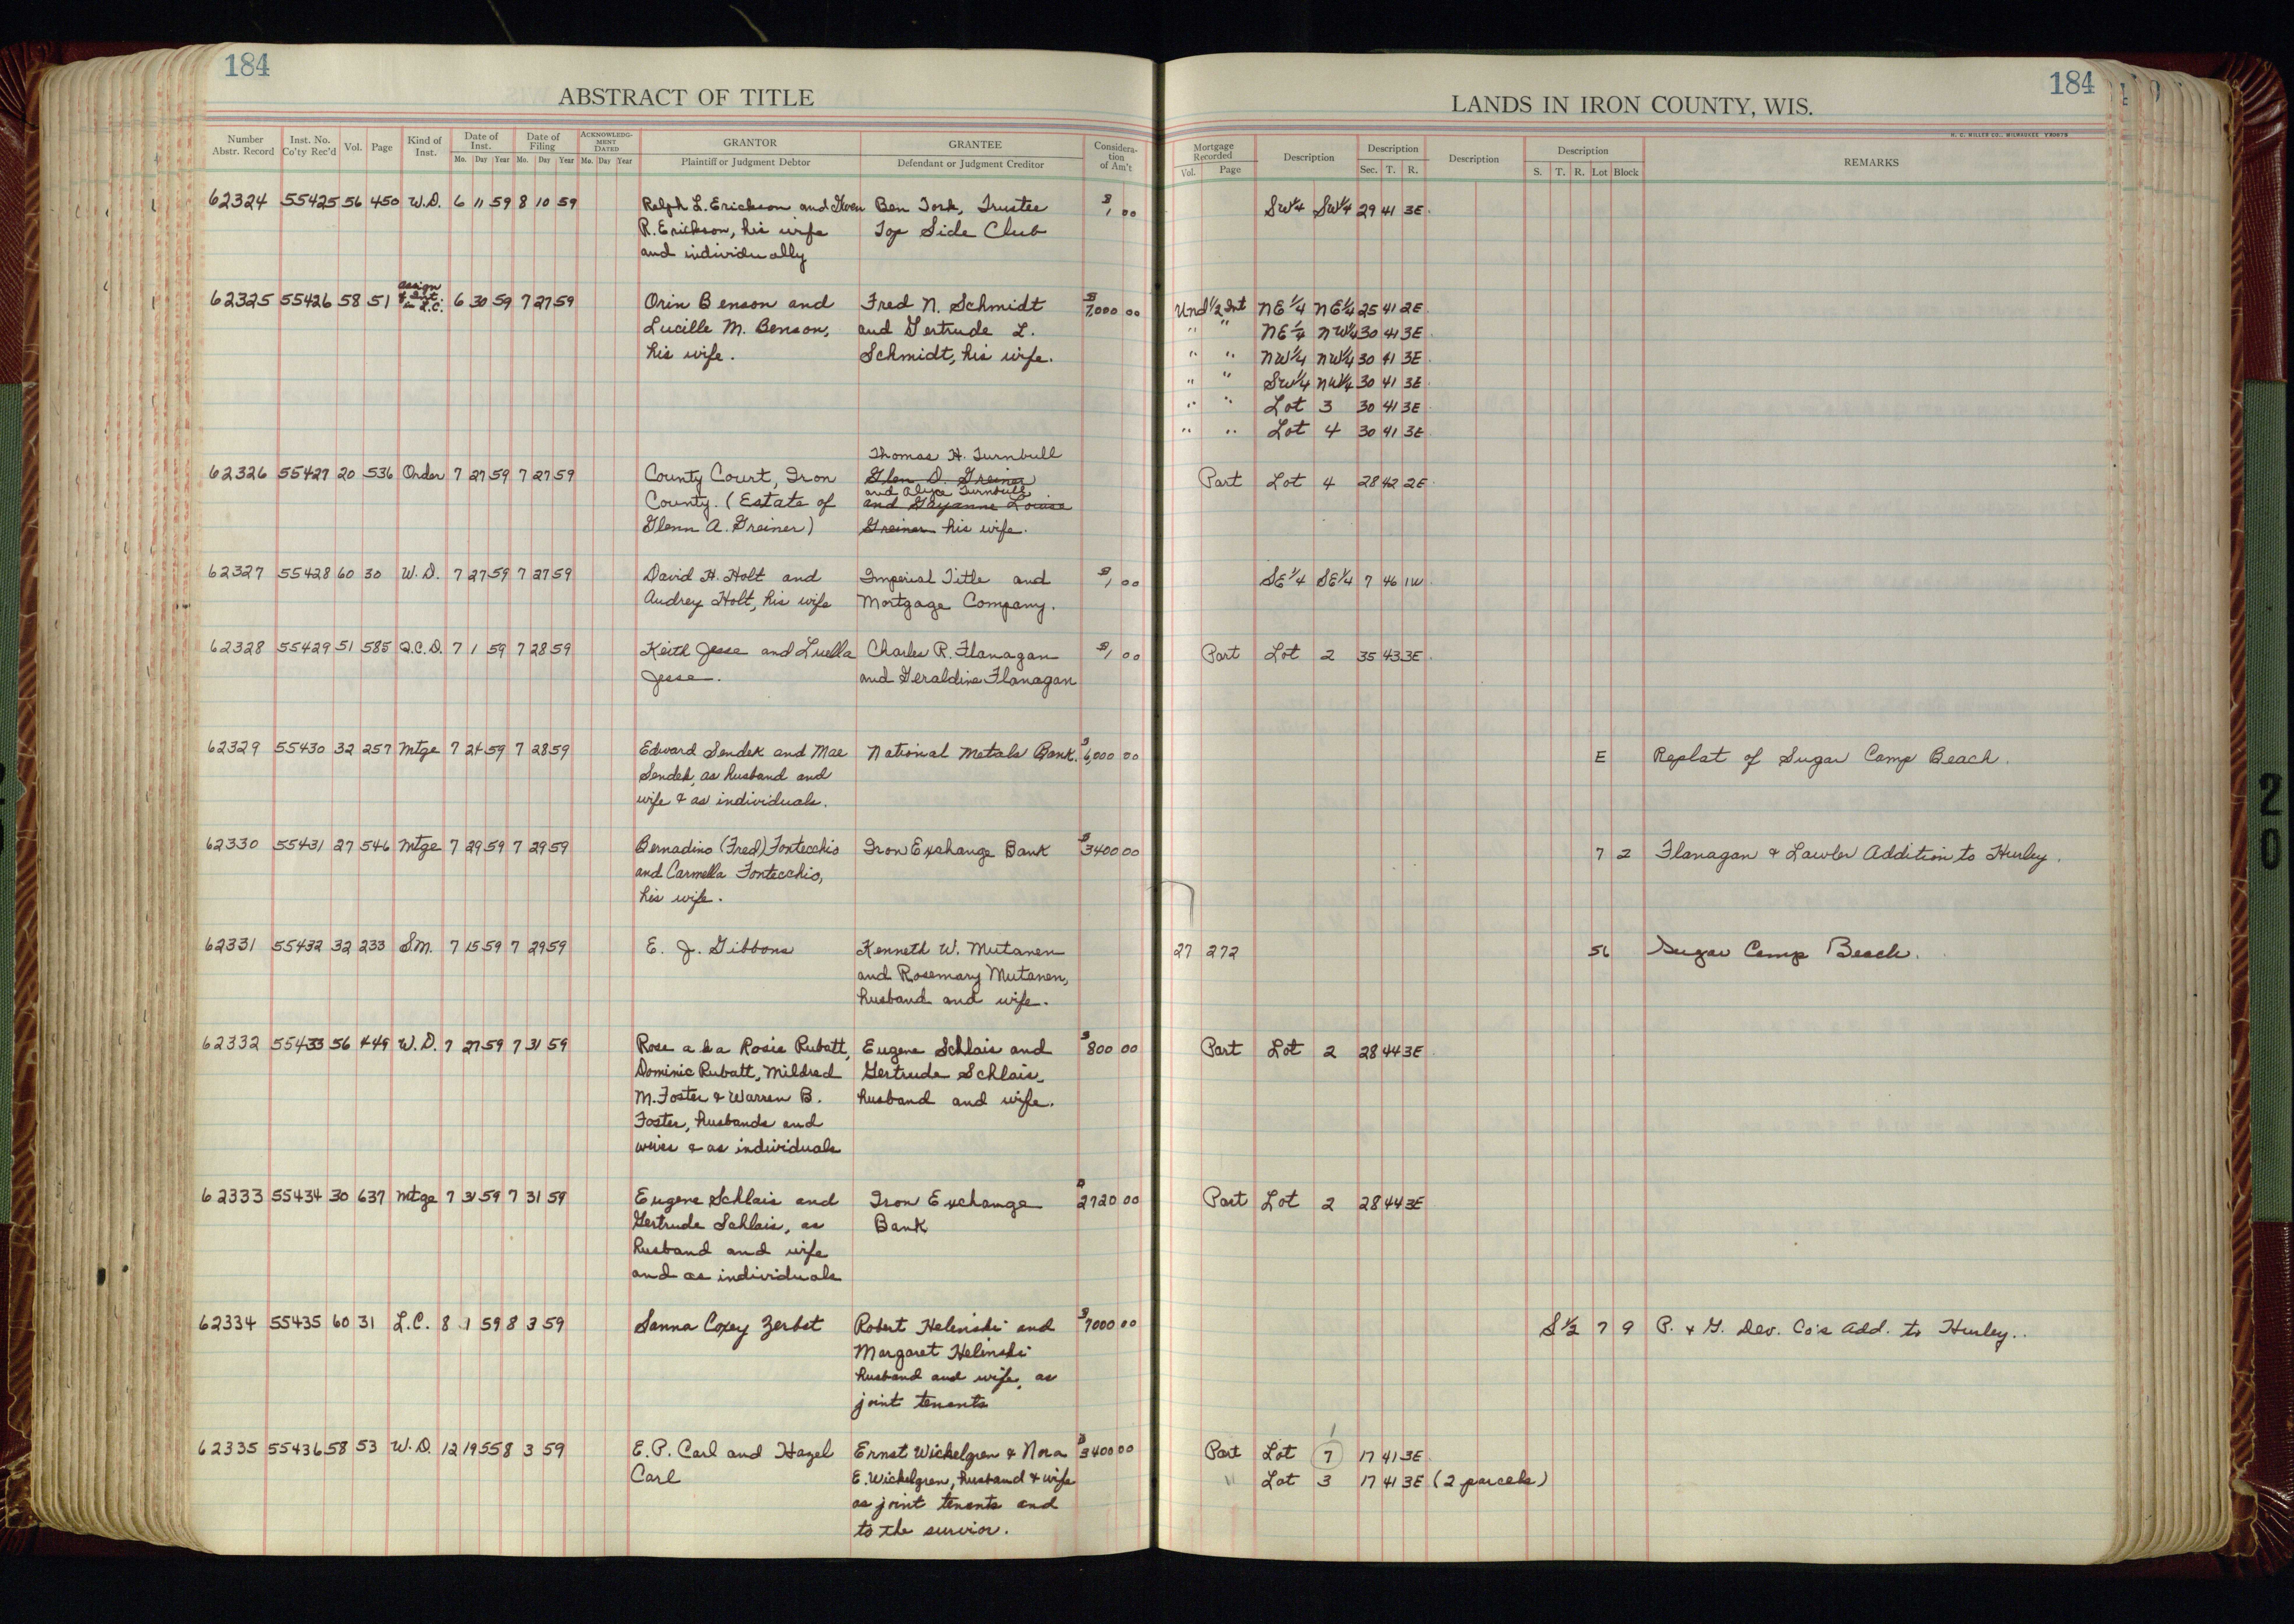 184
184
ABSTRACT OF TITLE
LANDS IN IRON COUNTY, WIS.
H. C. MILLER CO., MILWAUKEE
Number Abstr. Record | Inst. No. Co'ty Rec'd | Vol. | Page | Kind of Inst. | Date of Inst. Mo. Day Year | Date of Filing Mo. Day Year | ACKNOWLEDGMENT DATED Mo. Day Year | GRANTOR Plaintiff or Judgment Debtor | GRANTEE Defendant or Judgment Creditor | Consideration of Am't | Mortgage Recorded Vol. Page | Description | Description Sec. T. R. | Description | Description S. T. R. Lot Block | REMARKS
62324 55425 56 450 W.D. 6 11 59 8 10 59 Ralph L. Erickson and Gwen Ben Tork, Trustee $1 00 SW 1/4 SW 1/4 29 41 3E.
R. Erickson, his wife Top Side Club
and individually
62325 55426 58 51 assign of Int. in L.C. 6 30 59 7 27 59 Orin Benson and Fred N. Schmidt $7,000 00 Und 1/2 Int NE 1/4 NE 1/4 25 41 2E.
Lucille M. Benson, and Gertrude L. " " NE 1/4 NW 1/4 30 41 3E.
his wife. Schmidt, his wife. " " NW 1/4 NW 1/4 30 41 3E.
" " SW 1/4 NW 1/4 30 41 3E.
" " Lot 3 30 41 3E.
" " Lot 4 30 41 3E.
Thomas H. Turnbull
62326 55427 20 536 Order 7 27 59 7 27 59 County Court, Iron Glen D. Greiner Part Lot 4 28 42 2E.
and Alyce Turnbull
County. (Estate of and Gayanne Louise
Glenn A. Greiner) Greiner his wife.
62327 55428 60 30 W.D. 7 27 59 7 27 59 David H. Holt and Imperial Title and $1 00 SE 1/4 SE 1/4 7 46 1W.
Audrey Holt, his wife Mortgage Company.
62328 55429 51 585 Q.C.D. 7 1 59 7 28 59 Keith Jesse and Luella Charles R. Flanagan $1 00 Part Lot 2 35 43 3E.
Jesse. and Geraldine Flanagan
62329 55430 32 257 Mtge 7 24 59 7 28 59 Edward Sendek and Mae National Metals Bank. $6,000 00 E Replat of Sugar Camp Beach.
Sendek, as husband and
wife & as individuals.
62330 55431 27 546 Mtge 7 29 59 7 29 59 Bernadino (Fred) Fontecchio Iron Exchange Bank $3400 00 7 2 Flanagan & Lawler Addition to Hurley.
and Carmella Fontecchio,
his wife.
62331 55432 32 233 S.M. 7 15 59 7 29 59 E. J. Gibbons Kenneth W. Mutanen 27 272 56 Sugar Camp Beach.
and Rosemary Mutanen,
husband and wife.
62332 55433 56 449 W.D. 7 27 59 7 31 59 Rose a k a Rosie Rubatt, Eugene Schlais and $800 00 Part Lot 2 28 44 3E
Dominic Rubatt, Mildred Gertrude Schlais,
M. Foster & Warren B. husband and wife.
Foster, husbands and
wives & as individuals
62333 55434 30 637 Mtge 7 31 59 7 31 59 Eugene Schlais and Iron Exchange $2720 00 Part Lot 2 28 44 3E
Gertrude Schlais, as Bank
husband and wife
and as individuals
62334 55435 60 31 L.C. 8 1 59 8 3 59 Sanna Coxey Zerbst Robert Helinski and $7000 00 S 1/2 7 9 P. & G. Dev. Co's Add. to Hurley.
Margaret Helinski
husband and wife, as
joint tenants
62335 55436 58 53 W.D. 12 19 55 8 3 59 E.P. Carl and Hazel Ernst Wickelgren & Nora $3400 00 Part Lot 7 17 41 3E
Carl E. Wickelgren, husband & wife " Lot 3 17 41 3E (2 parcels)
as joint tenants and
to the survior.
20